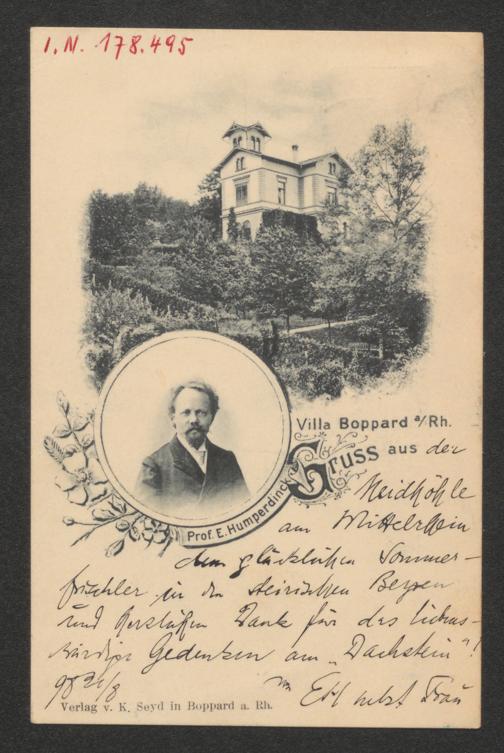 I.N. 178.495
Villa Boppard a/Rh.
Gruss aus der
Neidhöhle
am Mittelrhein
Prof. E. Humperdinck
dem glücklichen Sommer-
frischler in den steirischen Bergen
und herzlichen Dank für das liebens-
würdige Gedenken am „Dachstein"!
98 21/8 von EH nebst Frau
Verlag v. K. Seyd in Boppard a. Rh.